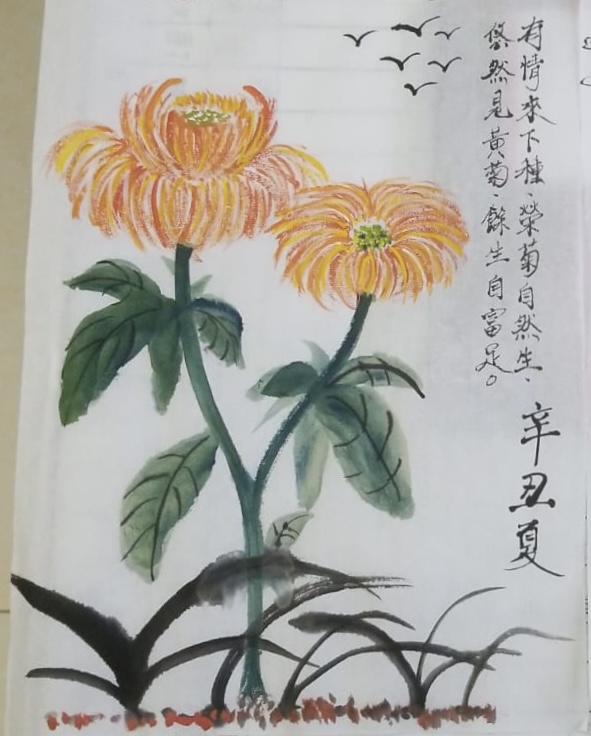 有情來下種、榮菊自然生、
悠然見黃菊、餘生自富足。
辛丑夏